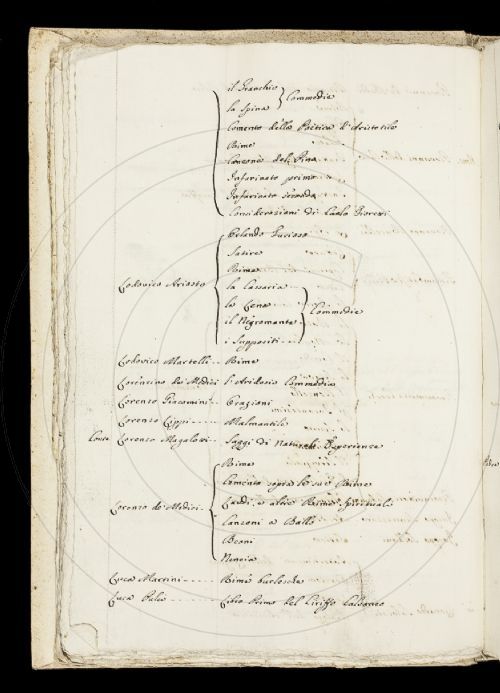 il Granchio
la Spina } Commedie
Comento della Poetica d'Aristotile
Rime
Canzone del Pino
Infarinato primo
Infarinato secondo
Considerazioni di Carlo Fioreti
Orlando Furioso
Satire
Rime
Lodovico Ariosto la Cassaria
la Cena
il Negromante } Commedie
i Suppositi
Lodovico Martelli Rime
Lorenzino de' Medici l'Aridosio Commedia
Lorenzo Giacomini Orazioni
Lorenzo Lippi Malmantile
Conte Lorenzo Magalotti Saggi di Naturali Esperienze
Rime
Comento sopra le sue Rime
Laudi, e altre Rime Spirituali
Lorenzo de' Medici
Canzoni a Ballo
Beoni
Nencia
Luca Martini Rime burlesche
Luca Pulci Libro Primo del Ciriffo Calvaneo